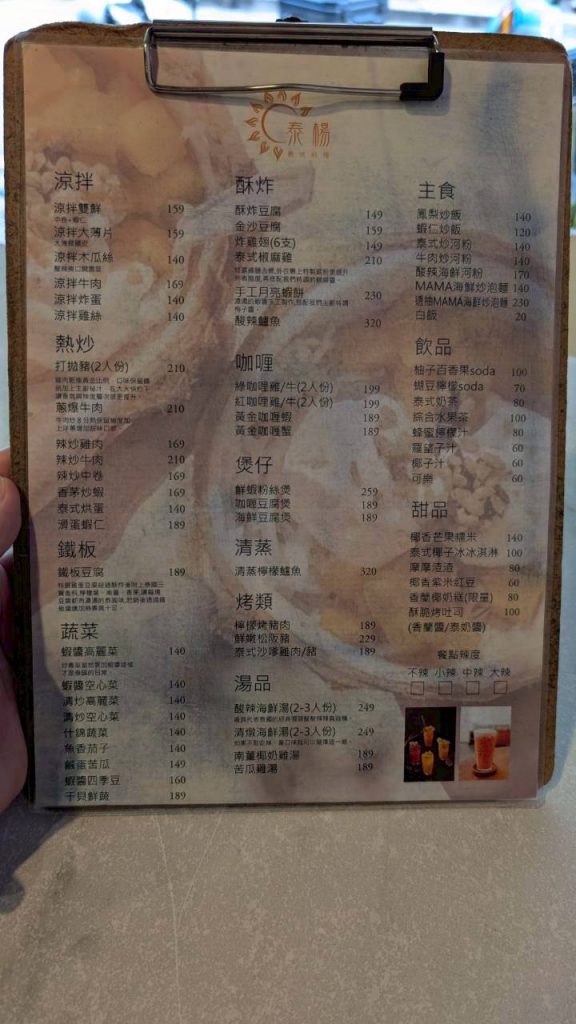 泰楊
涼拌
涼拌雙鮮 159
涼拌大薄片 159
涼拌木瓜絲 140
涼拌牛肉 169
涼拌炸蛋 140
涼拌雞絲 140
熱炒
打拋豬(2人份) 210
蔥爆牛肉 210
辣炒雞肉 169
辣炒牛肉 210
辣炒中卷 169
香茅炒蝦 169
泰式烘蛋 140
滑蛋蝦仁 189
鐵板
鐵板豆腐 189
蔬菜
蝦醬高麗菜 140
蝦醬空心菜 140
清炒高麗菜 140
清炒空心菜 140
什錦蔬菜 140
魚香茄子 140
鹹蛋苦瓜 149
蝦醬四季豆 160
干貝鮮蔬 189
酥炸
酥炸豆腐 149
金沙豆腐 159
炸雞翅(6支) 149
泰式椒麻雞 210
手工月亮蝦餅 230
酸辣鱸魚 320
咖喱
綠咖哩雞/牛(2人份) 199
紅咖哩雞/牛(2人份) 199
黃金咖喱蝦 189
黃金咖喱蟹 189
煲仔
鮮蝦粉絲煲 259
咖喱豆腐煲 189
海鮮豆腐煲 189
清蒸
清蒸檸檬鱸魚 320
烤類
檸檬烤豬肉 189
鮮嫩松阪豬 229
泰式沙嗲雞肉/豬 189
湯品
酸辣海鮮湯(2-3人份) 249
清燉海鮮湯(2-3人份) 249
南薑椰奶雞湯 189
苦瓜雞湯 189
主食
鳳梨炒飯 140
蝦仁炒飯 120
泰式炒河粉 140
牛肉炒河粉 140
酸辣海鮮河粉 170
MAMA海鮮炒泡麵 140
MAMA海鮮炒泡麵 230
白飯 20
飲品
柚子百香果soda 100
蝴豆檸檬soda 70
泰式奶茶 80
綜合水果茶 100
蜂蜜檸檬汁 80
羅望子汁 60
椰子汁 60
可樂 60
甜品
椰香芒果糯米 140
泰式椰子冰冰淇淋 100
摩摩渣渣 80
椰香紫米紅豆 60
香蘭椰奶(限量) 80
酥脆烤吐司 100
(香蘭醬/泰奶醬)
餐點辣度
不辣 小辣 中辣 大辣